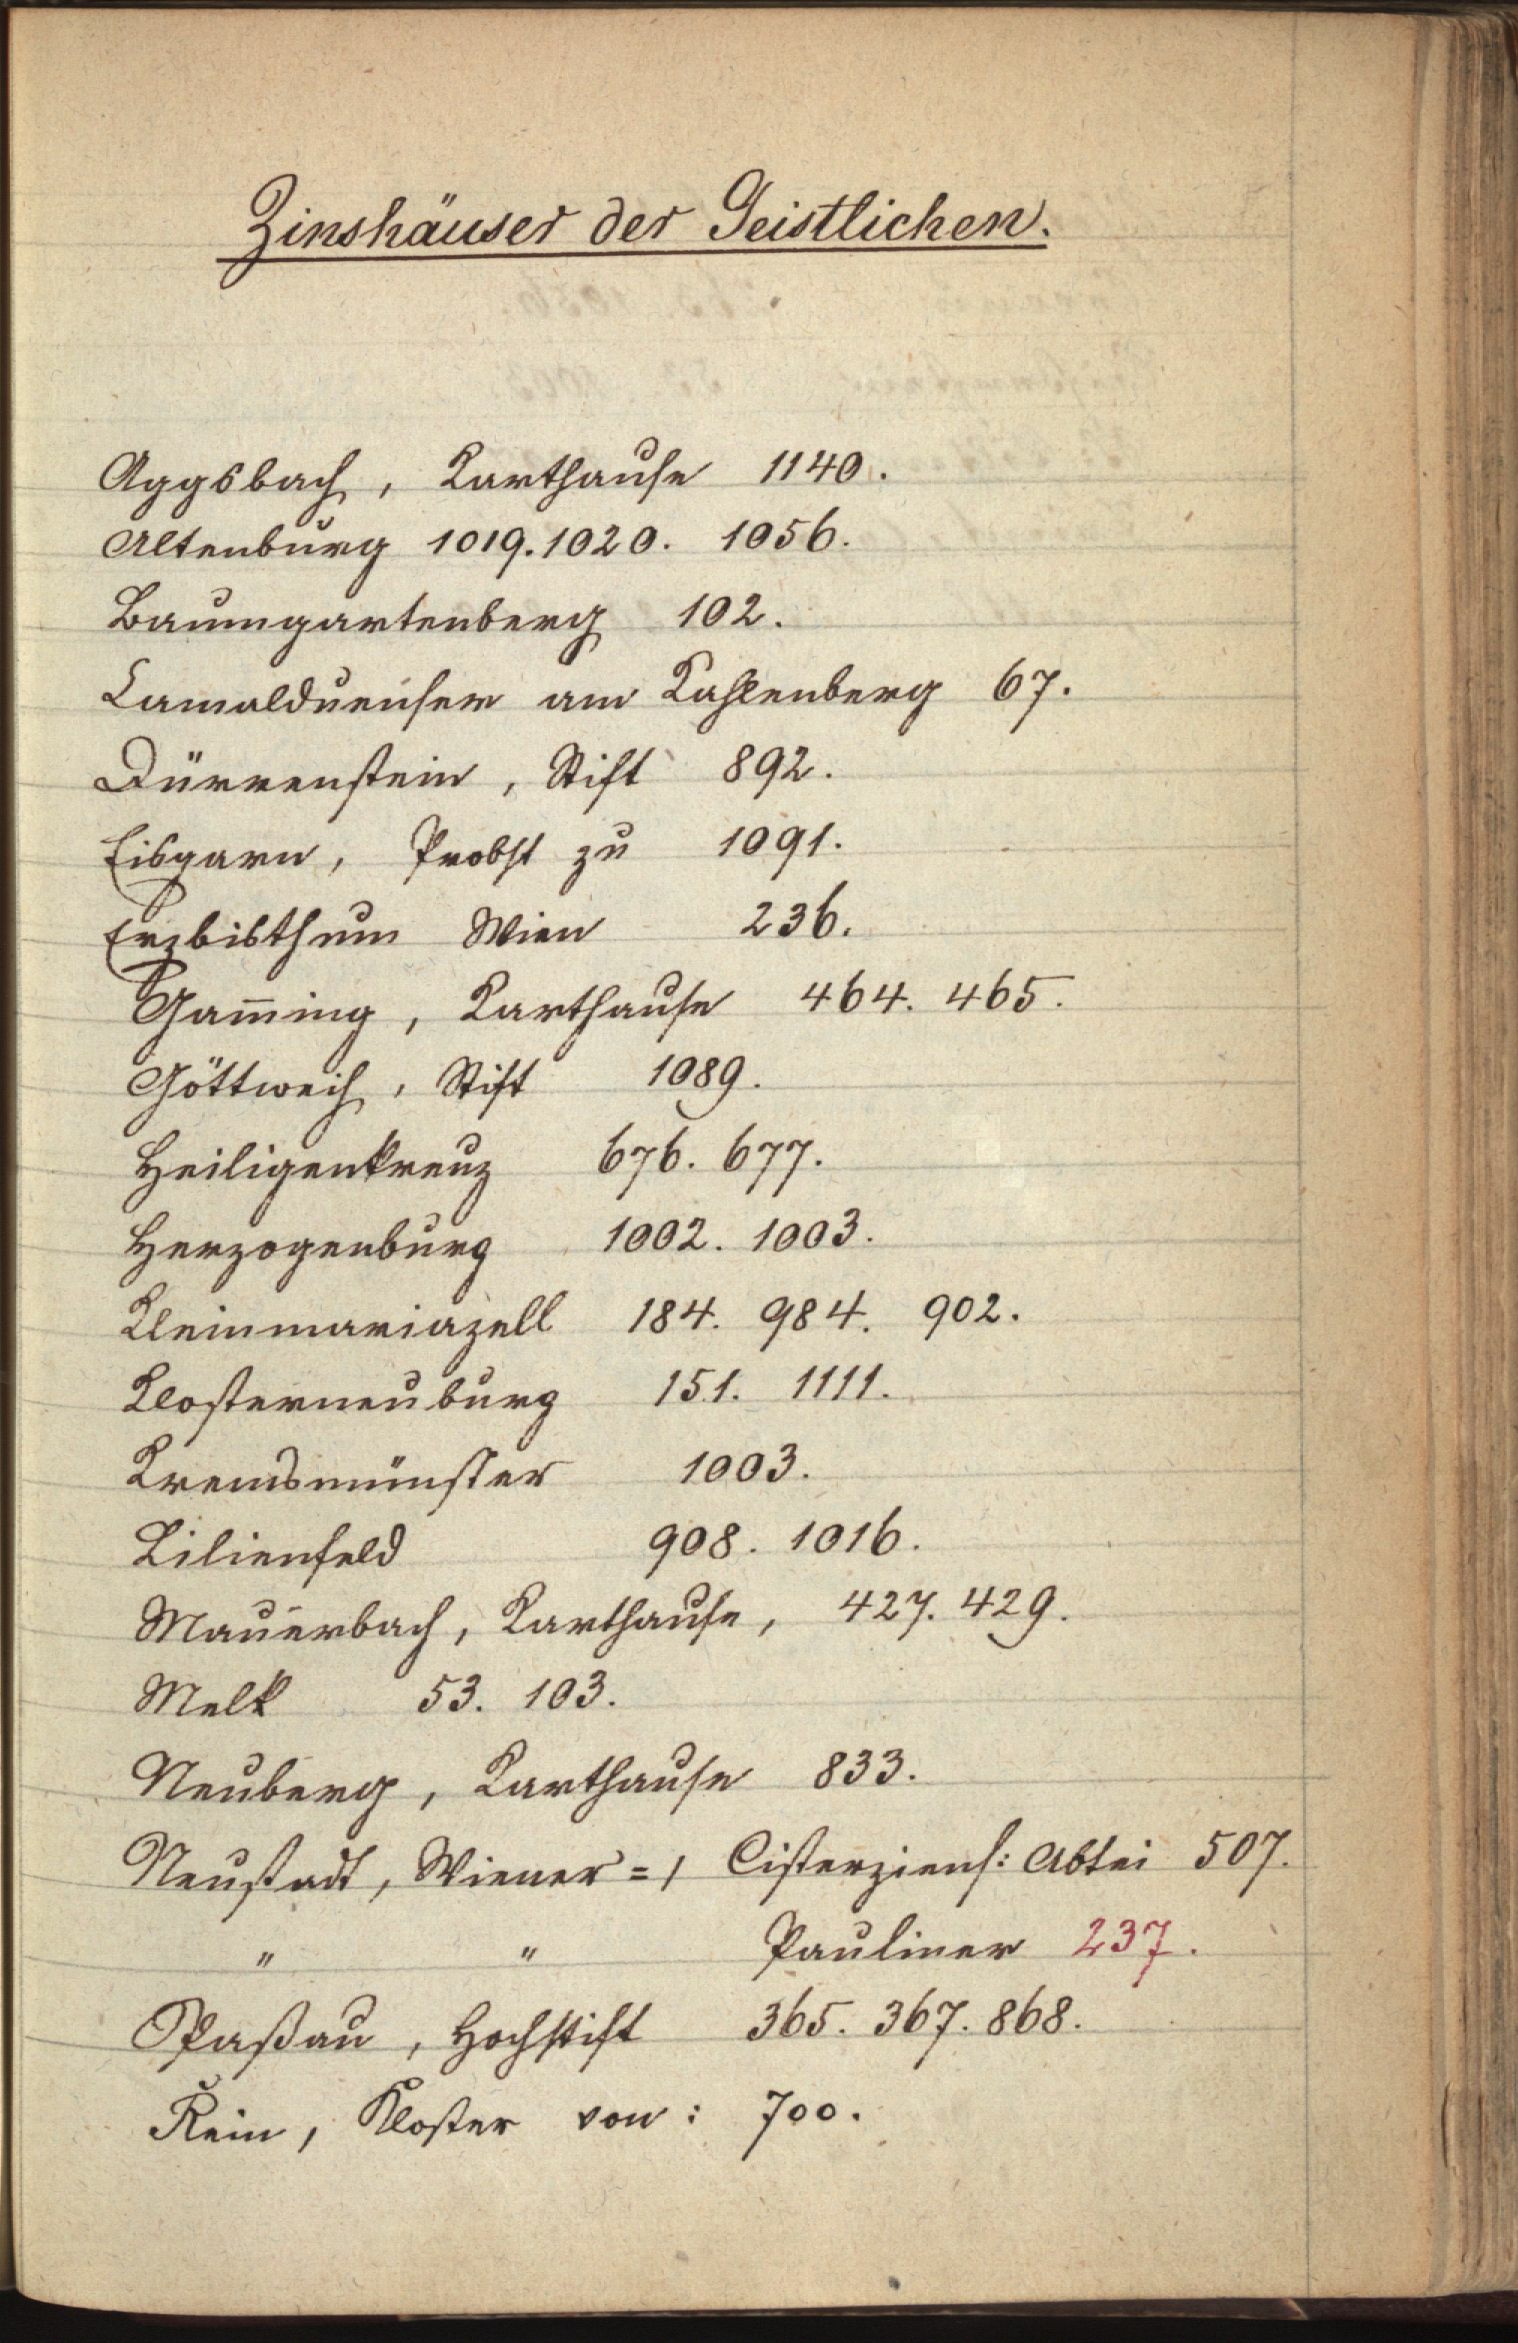 Zinshäuser der Geistlichen.
Aggsbach, Karthause 1140.
Altenburg 1019. 1020. 1056.
Baumgartenberg 102.
Camalduenser am Kahlenberg 67.
Dürrenstein, Stift 892.
Eisgarn, Probst zu 1091.
Erzbisthum Wien 236.
Gam̅ing, Karthause 464. 465.
Göttweih, Stift 1089.
Heiligenkreuz 676. 677.
Herzogenburg 1002. 1003.
Kleinmariazell 184. 984. 902.
Klosterneuburg 151. 1111.
Kremsmünster 1003.
Lilienfeld 908. 1016.
Mauerbach, Karthause, 427. 429.
Melk 53. 103.
Neuberg, Karthause 833.
Neustadt, Wiener=, Cisterziens: Abtei 507.
" " Pauliner 237.
Paßau, Hochstift 365. 367. 868.
Rein, Kloster von: 700.